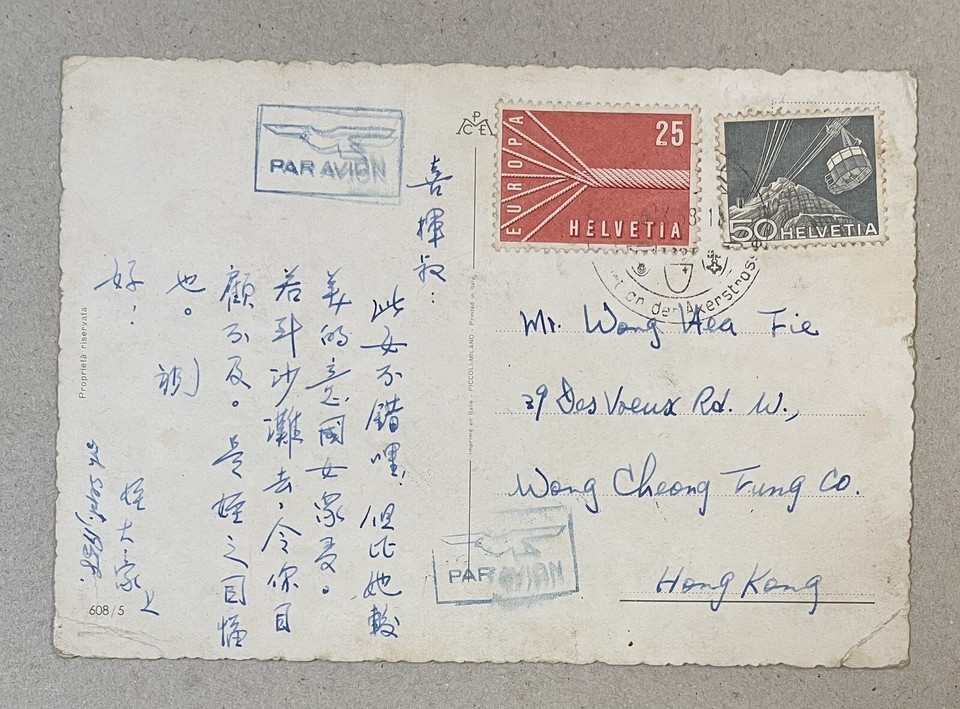 PAR AVION
P
CE
EUROPA
25
HELVETIA
50 HELVETIA
an der Akerstrasse
喜揮叔：
此女不錯哩，但比她較
美的意國女家多。
若到沙灘去，令你目
顧不及。是姪之目福
也。祝
好！
姪大家上
Mr. Wong Hea Fie
29 Des Voeux Rd. W.,
Wong Cheong Fung Co.
Hong Kong
PAR AVION
Proprietà riservata
Imprimé en Italie - PICCOLI-MILANO - Printed in Italy
608/5